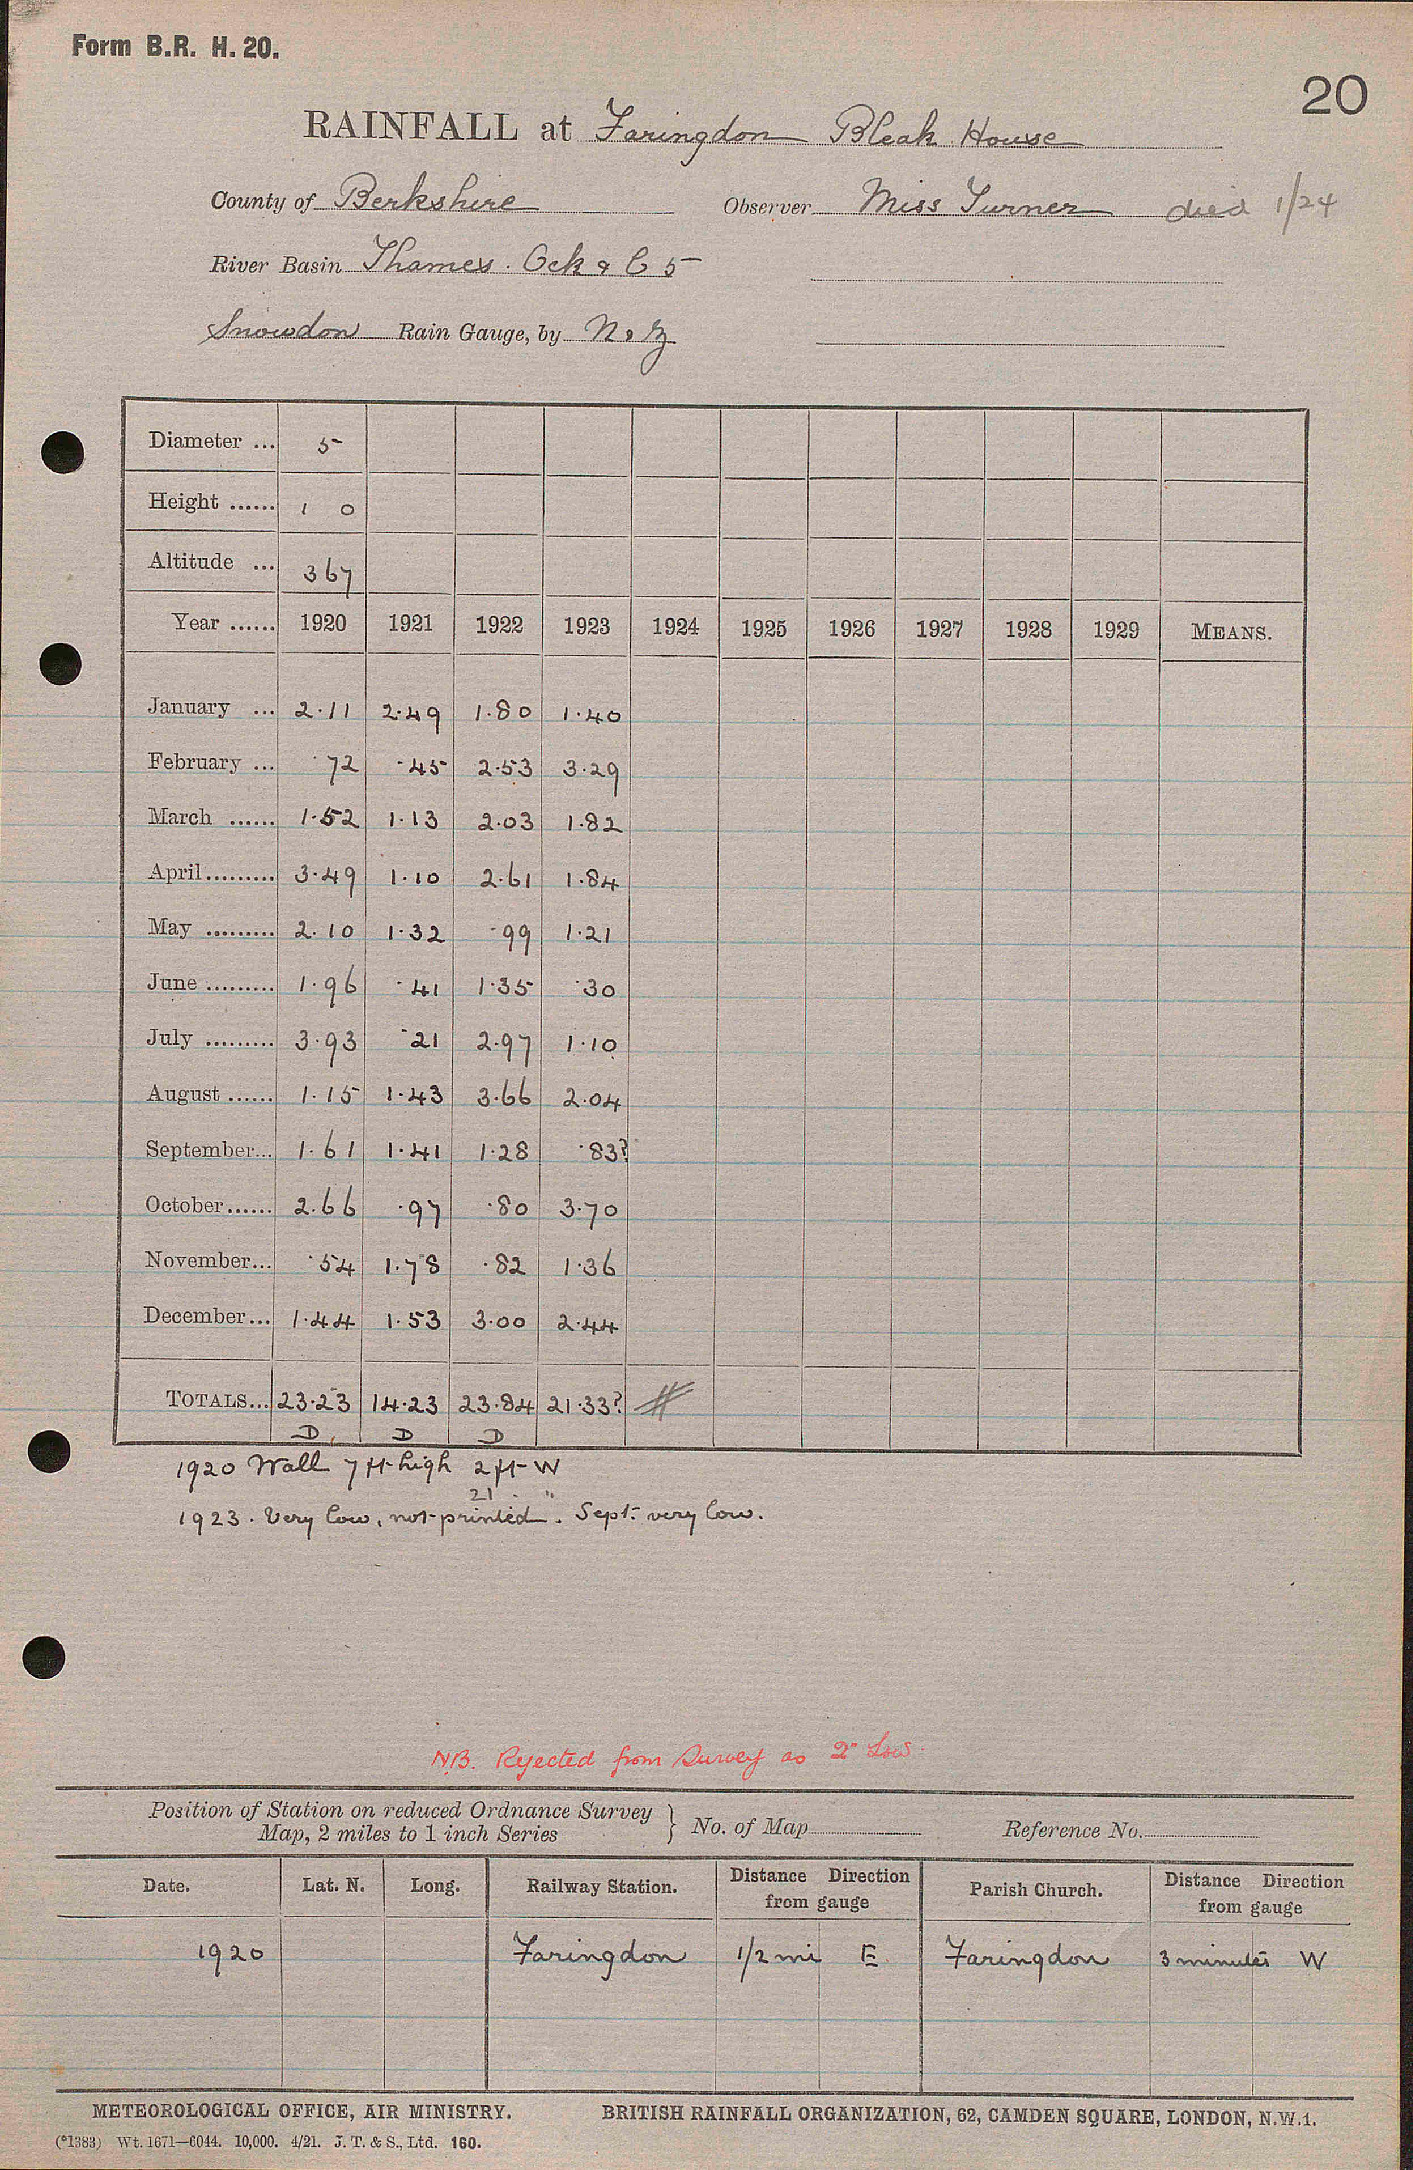 Form B.R. H. 20.
20
RAINFALL at Faringdon Bleak House
County of Berkshire Observer Miss Turner died 1/24
River Basin Thames. Ock & C 5
Snowdon Rain Gauge, by N & Z
Diameter ... 5
Height ...... 1 0
Altitude ... 367
Year ...... 1920 1921 1922 1923 1924 1925 1926 1927 1928 1929 MEANS.
January ... 2.11 2.49 1.80 1.40
February ... .72 .45 2.53 3.29
March ...... 1.52 1.13 2.03 1.82
April......... 3.49 1.10 2.61 1.84
May ......... 2.10 1.32 .99 1.21
June ......... 1.96 .41 1.35 .30
July ......... 3.93 .21 2.97 1.10
August ...... 1.15 1.43 3.66 2.04
September... 1.61 1.41 1.28 .83?
October...... 2.66 .97 .80 3.70
November... .54 1.78 .82 1.36
December... 1.44 1.53 3.00 2.44
TOTALS... 23.23 14.23 23.84 21.33?
D D D
1920 Wall 7 ft high 2 ft W
21 "
1923. Very low, not printed. Sept. very low.
NB. Rejected from Survey as 2" Low.
Position of Station on reduced Ordnance Survey
Map, 2 miles to 1 inch Series } No. of Map Reference No.
Date. Lat. N. Long. Railway Station. Distance Direction from gauge Parish Church. Distance Direction from gauge
1920 Faringdon 1/2 mi E Faringdon 3 minutes W
METEOROLOGICAL OFFICE, AIR MINISTRY. BRITISH RAINFALL ORGANIZATION, 62, CAMDEN SQUARE, LONDON, N.W.1.
(*1383) Wt. 1671—6044. 10,000. 4/21. J. T. & S., Ltd. 160.